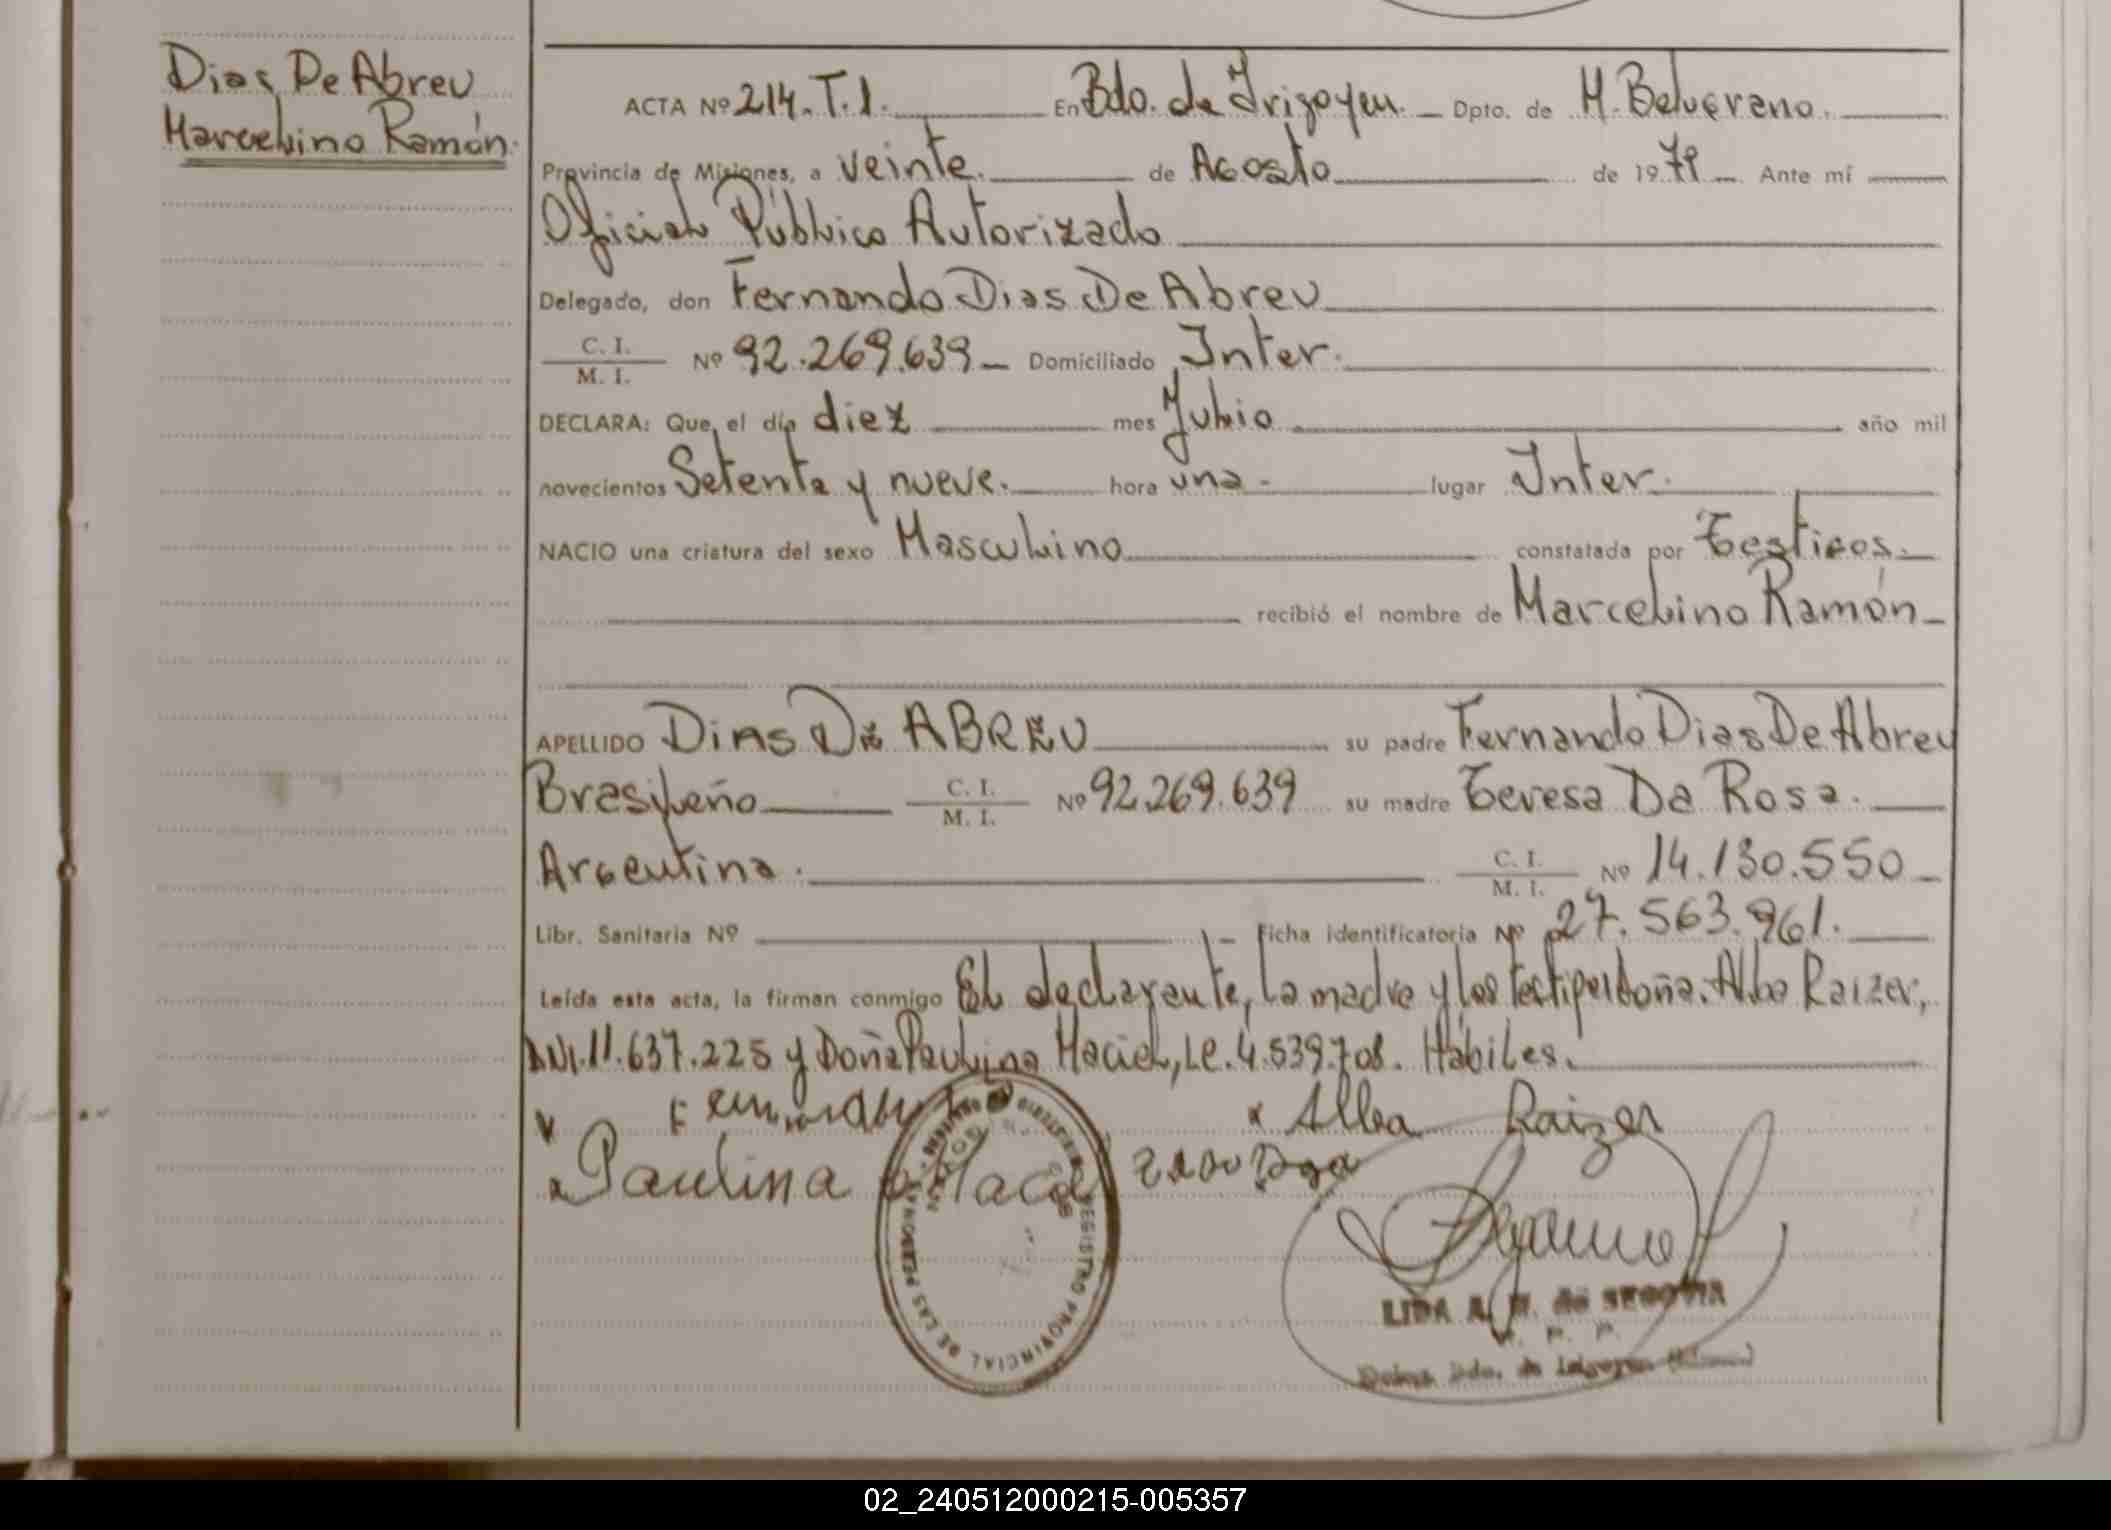 Dias De Abreu
Marcelino Ramón.
ACTA Nº 214. T.I. En Bdo. de Irigoyen. Dpto. de M. Belgrano.
Provincia de Misiones, a veinte. de Agosto de 1979 Ante mí
Oficial Público Autorizado
Delegado, don Fernando Dias De Abreu
C. I.
M. I. Nº 92.269.639 Domiciliado Inter.
DECLARA: Que, el día diez mes Julio año mil
novecientos Setenta y nueve. hora una. lugar Inter.
NACIO una criatura del sexo Masculino constatada por Testigos.
recibió el nombre de Marcelino Ramón
APELLIDO DIAS DE ABREU su padre Fernando Dias De Abreu
Brasileño C. I.
M. I. Nº 92.269.639 su madre Teresa Da Rosa.
Argentina. C. I.
M. I. Nº 14.130.550
Libr. Sanitaria Nº Ficha identificatoria Nº 27.563.961.
Leída esta acta, la firman conmigo El declarante, la madre y los testigos Doña. Alba Raizer,
DNI. 11.637.225 y Doña Paulina Maciel, LC. 4.539.708. Hábiles.
x Alba Raizer
Paulina
REGISTRO PROVINCIAL DE LAS PERSONAS
LIDA A. M. de SEGOVIA
Bdo. de Irigoyen
02_240512000215-005357